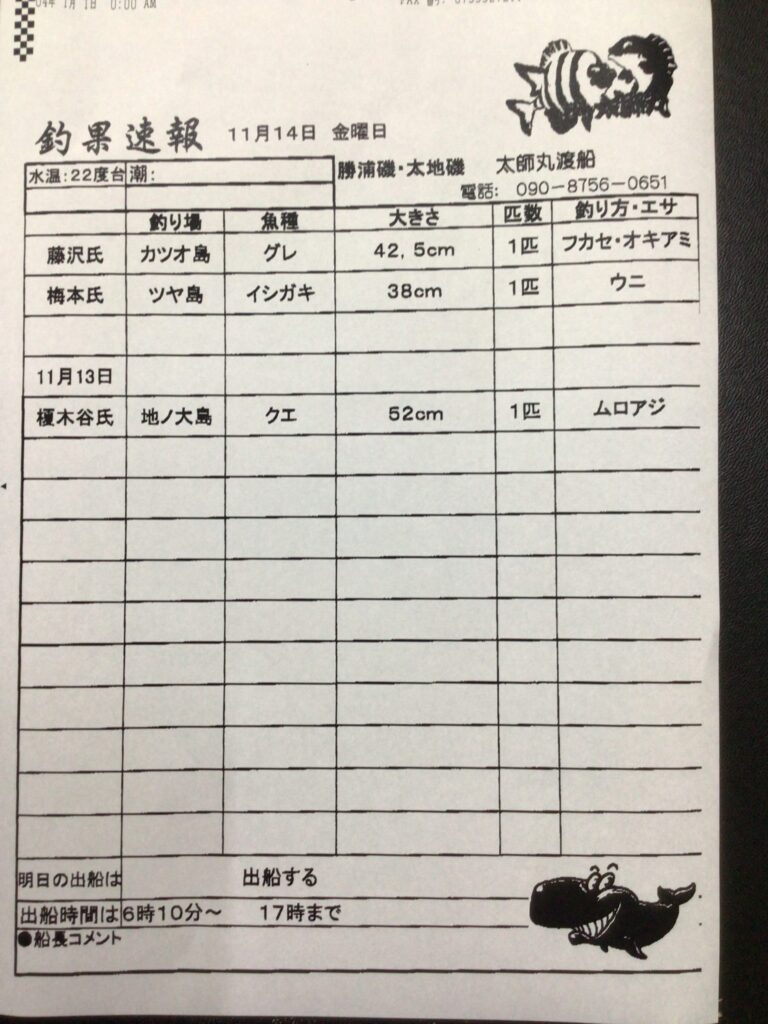 1月 1日 0:00 AM
釣果速報 11月14日 金曜日
水温:22度台 潮: 勝浦磯・太地磯 太師丸渡船
電話: 090-8756-0651
釣り場 魚種 大きさ 匹数 釣り方・エサ
藤沢氏 カツオ島 グレ 42,5cm 1匹 フカセ・オキアミ
梅本氏 ツヤ島 イシガキ 38cm 1匹 ウニ
11月13日
榎木谷氏 地ノ大島 クエ 52cm 1匹 ムロアジ
明日の出船は 出船する
出船時間は 6時10分～ 17時まで
●船長コメント